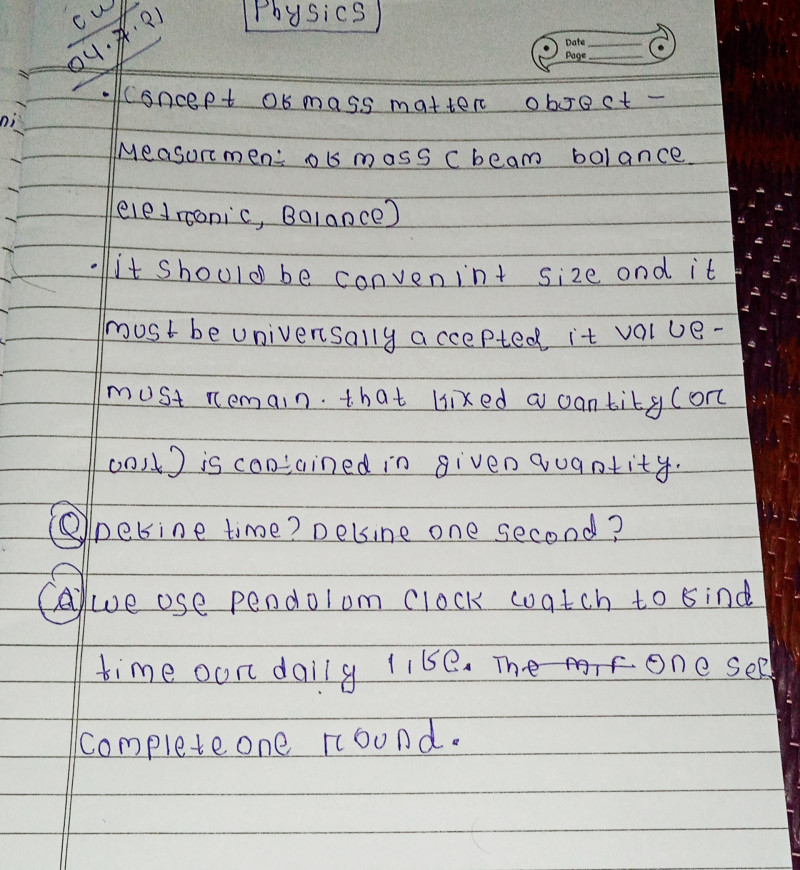 Physics
CW
04.7.21
Date
Page
• Concept of mass matter object -
Measuremen: of mass (beam balance
eletronic, Balance)
• it should be convenint size and it
must be universally accepted it value-
must remain. that fixed quantity (or
unit) is contained in given quantity.
Q Define time? Define one second?
A we use pendolom clock watch to find
time our daily life. The one sec
complete one round.